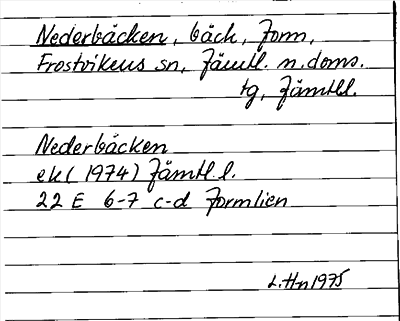 Nederbäcken, bäck, Jorm,
Frostvikens sn, Jämtl. n. doms.
tg, Jämtl.
Nederbäcken
ek (1974) Jämtl. l.
22 E 6-7 c-d Jormlien
L. Hn 1975